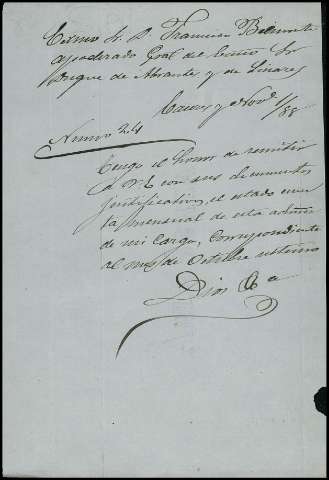 Excmo Sr. D. Francisco
apoderado Gral del Excmo Sr
Duque de Abrantes y de Linares
y Novbe 1/88
Numo 24
Tengo el honor de remitir
a V.E. con sus documentos
justificativos, el estado cuen
ta mensual de esta admon
de mi cargo, correspondiente
al mes de Octubre ultimo
Dios &a